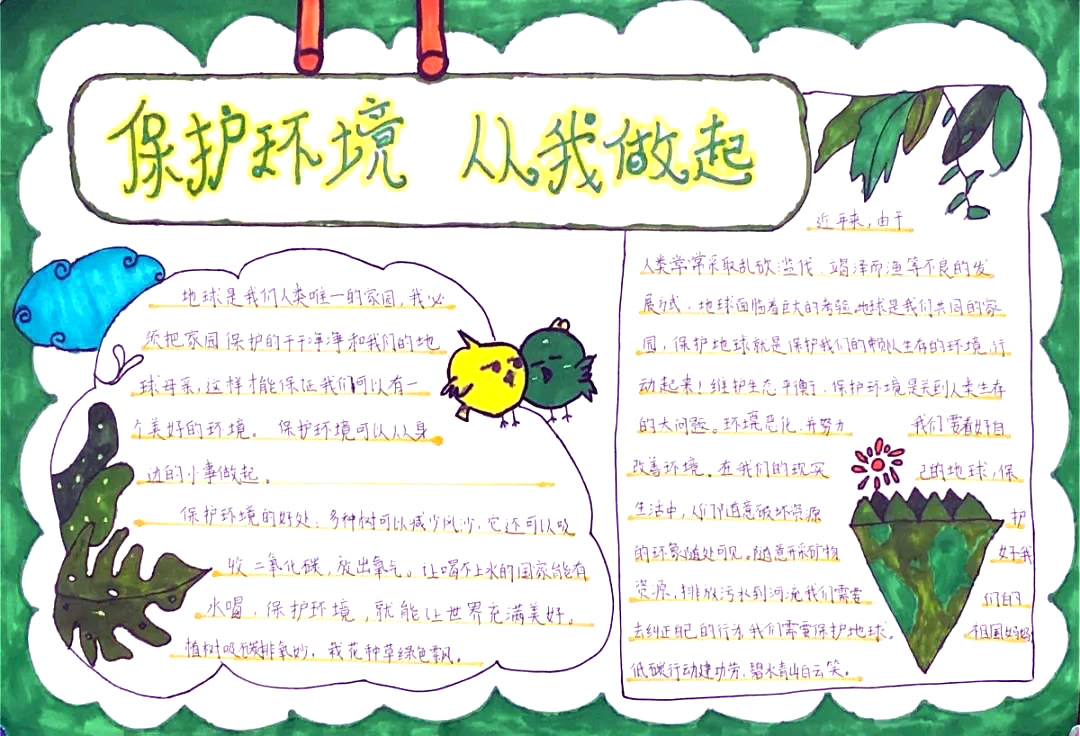 保护环境 从我做起
地球是我们人类唯一的家园，我必
须把家园保护的干干净净和我们的地
球母亲，这样才能保证我们可以有一
个美好的环境。 保护环境可以从身
边的小事做起。
保护环境的好处：多种树可以减少风沙，它还可以吸
收二氧化碳，放出氧气。让喝不上水的国家能有
水喝，保护环境，就能让世界充满美好。
植树吸碳排氧妙，我花种草绿色飘。
近年来，由于
人类常常采取乱砍滥伐、竭泽而渔等不良的发
展方式，地球面临着巨大的考验。地球是我们共同的家
园，保护地球就是保护我们的赖以生存的环境，行
动起来！维护生态平衡，保护环境是关到人类生存
的大问题。环境恶化，并努力
改善环境。在我们的现实
生活中，人们随意破坏资源
的环象随处可见。随意开采矿物
资源，排放污水到河流我们需要
去纠正自己的行为，我们需要保护地球。
低碳行动建功劳，碧水青山白云笑。
我们要看好自
己的地球，保
护
好我
们的
祖国妈妈